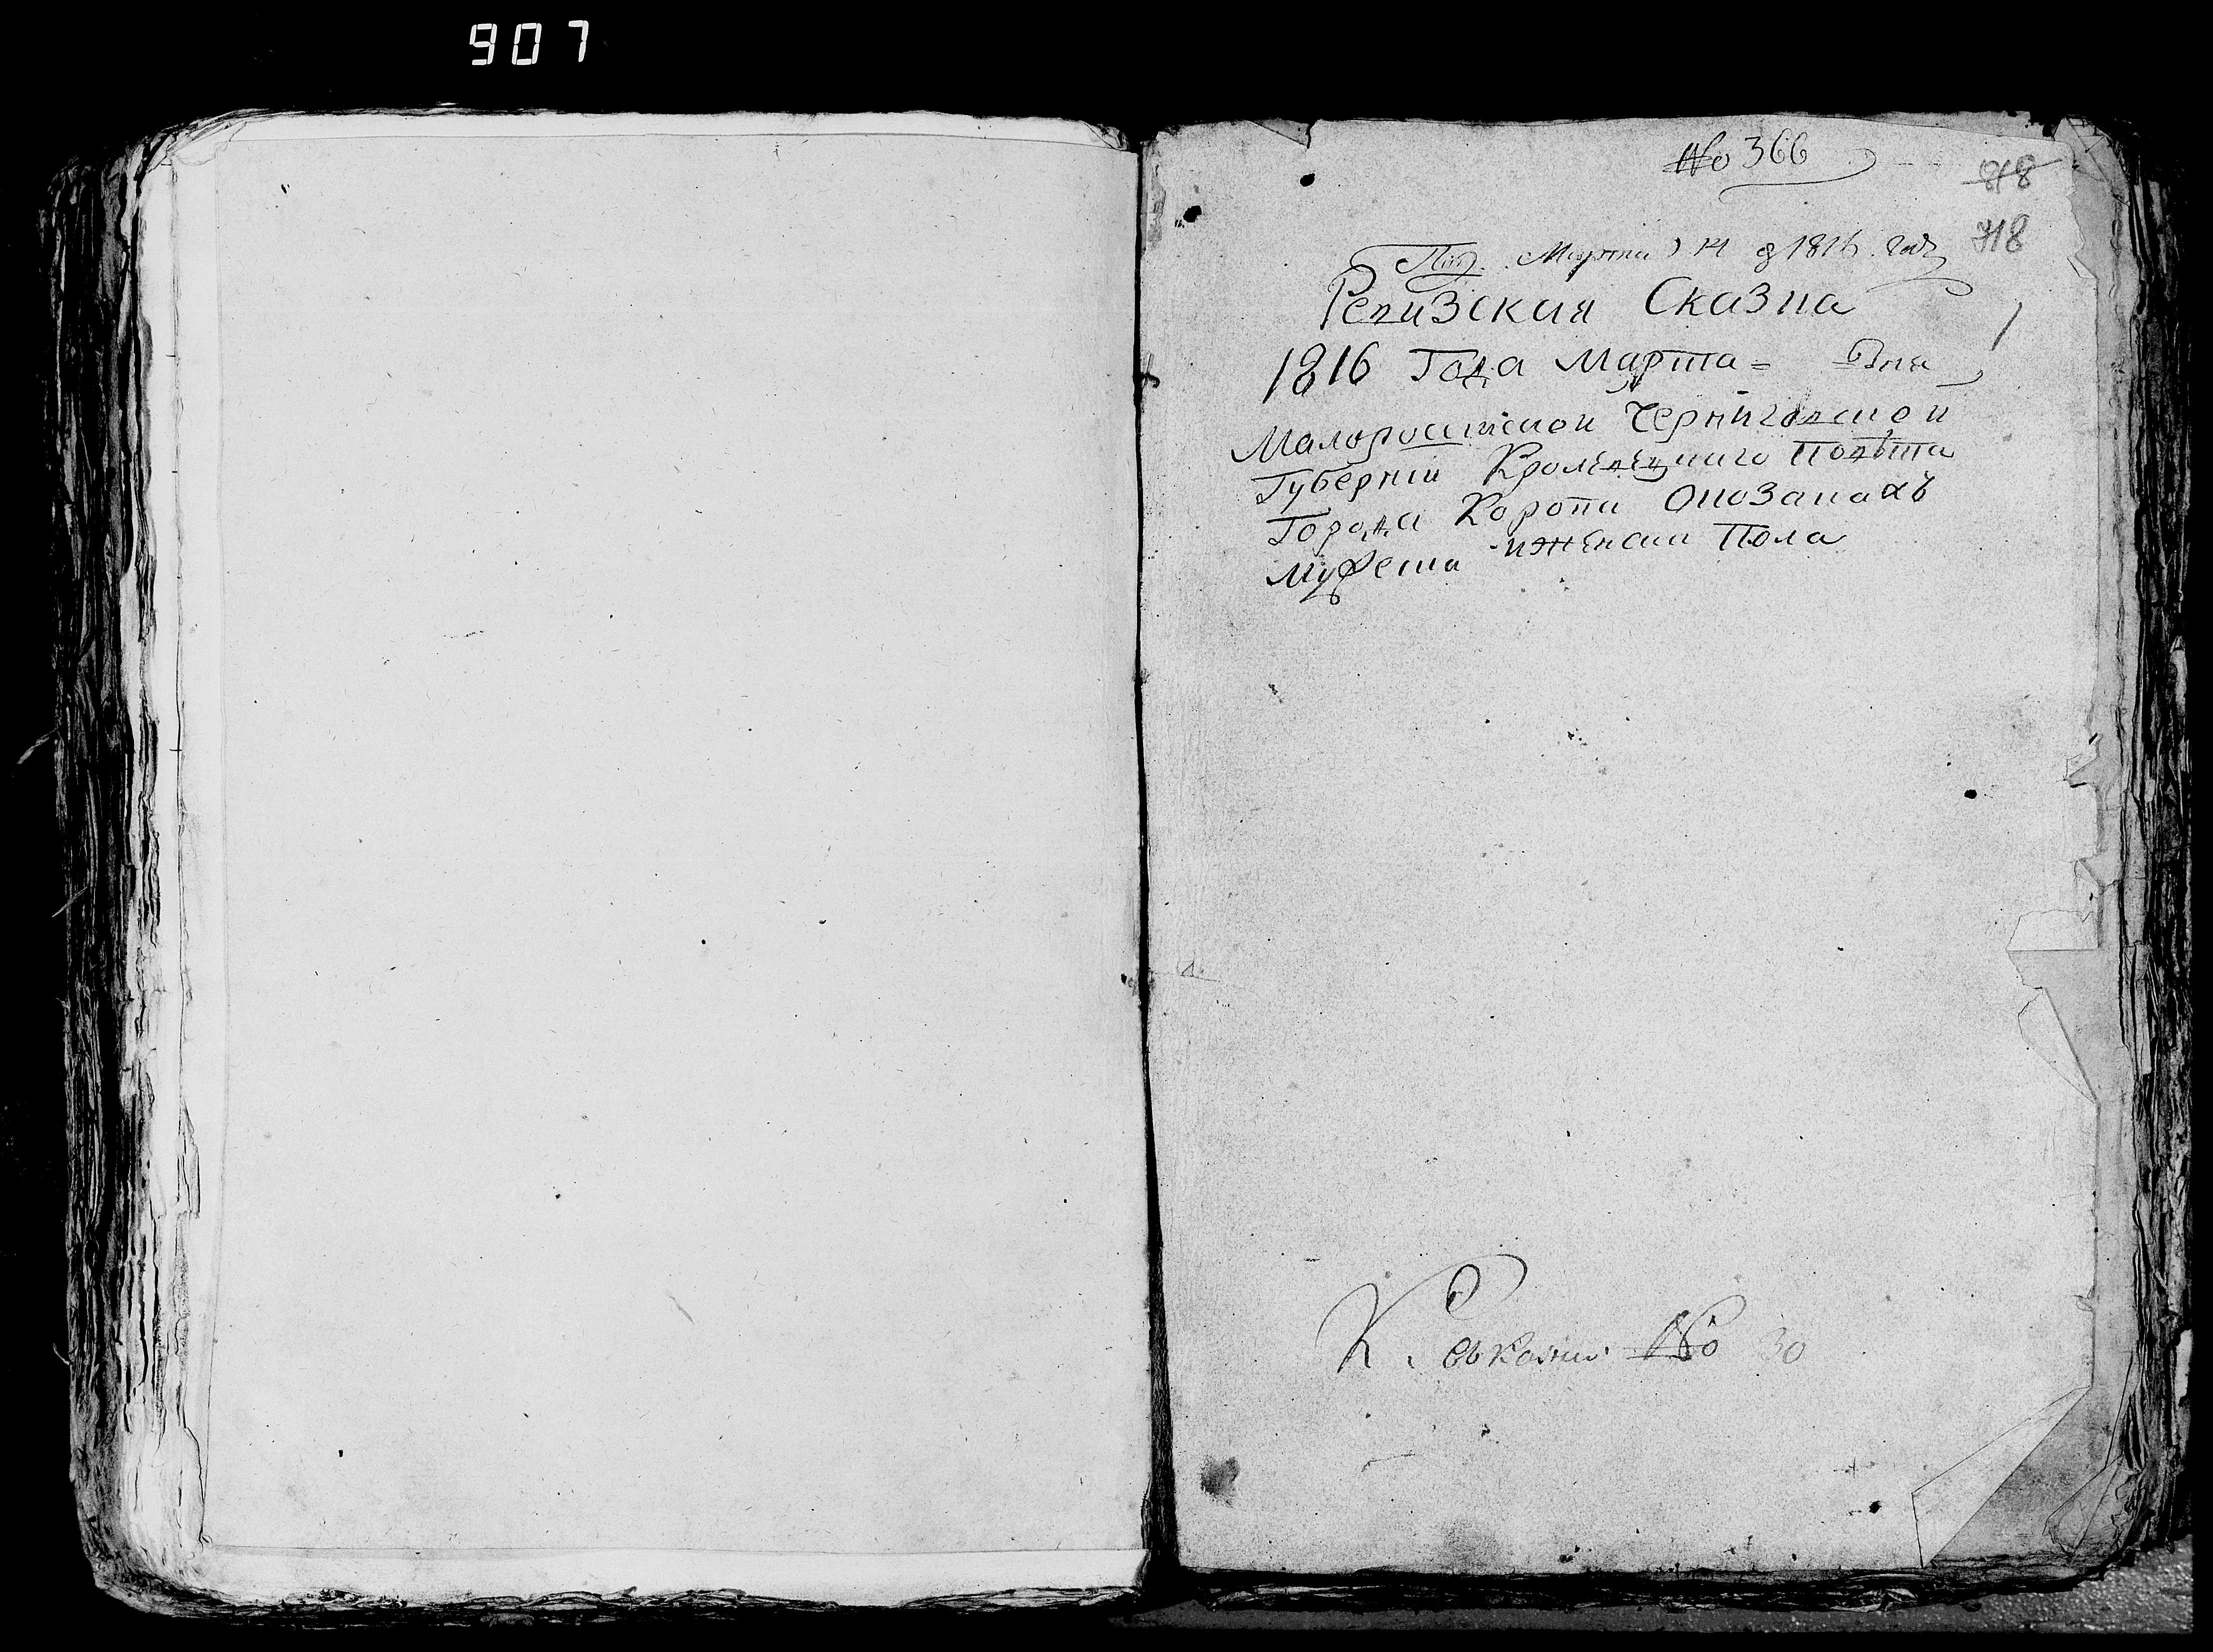 907
№ 366
818
718
Марта 14 д 1816 года
Ревизская Сказка
1816 Года Марта = Дня
Малороссийской Черниговской
Губерніи Кролевецкаго Повѣта
Города Коропа Окозакахъ
Мужеска иженска Пола
К. №о 30